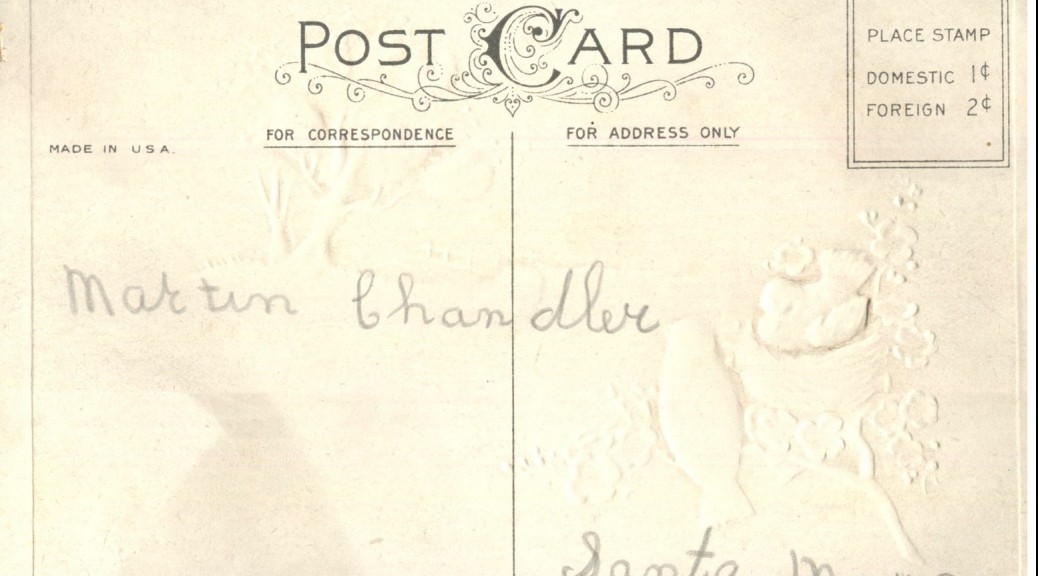 POST CARD
PLACE STAMP
DOMESTIC 1¢
FOREIGN 2¢
FOR CORRESPONDENCE
FOR ADDRESS ONLY
MADE IN USA.
Martin Chandler
Santa